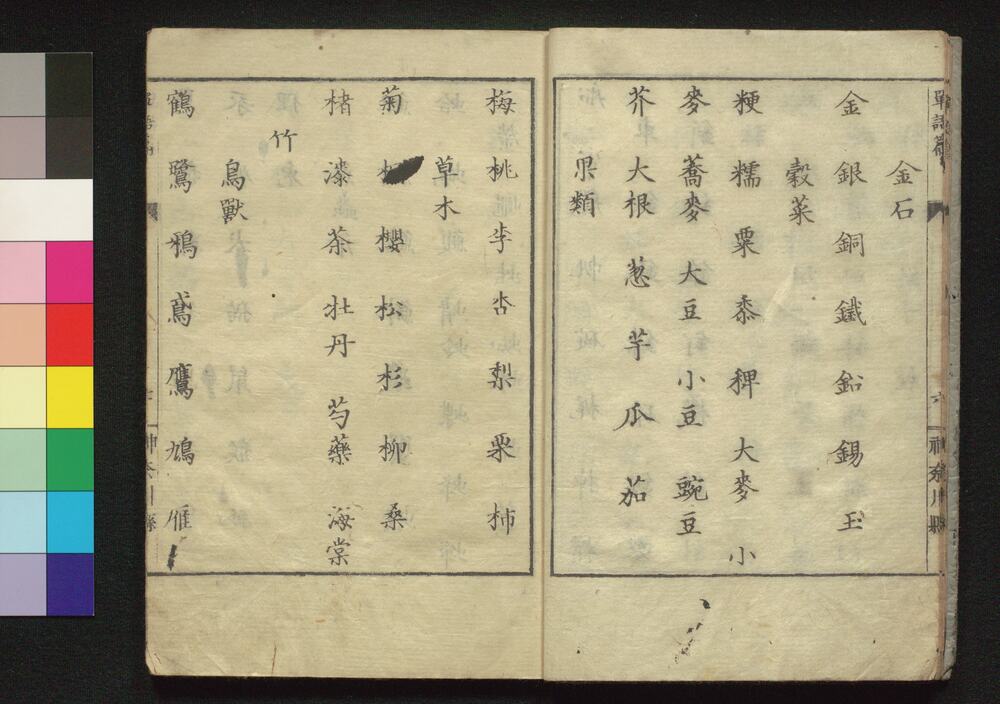 單語篇 六 神奈川縣
金石
金 銀 銅 鐵 鉛 錫 玉
穀菜
粳 糯 粟 黍 稗 大麥 小
麥 蕎麥 大豆 小豆 豌豆
芥 大根 葱 芋 瓜 茄
果類
梅 桃 李 杏 梨 栗 柿
草木
菊 櫻 松 杉 柳 桑
楮 漆 茶 牡丹 芍藥 海棠
竹
鳥獸
鶴 鷺 鴉 鳶 鷹 鳩 雁